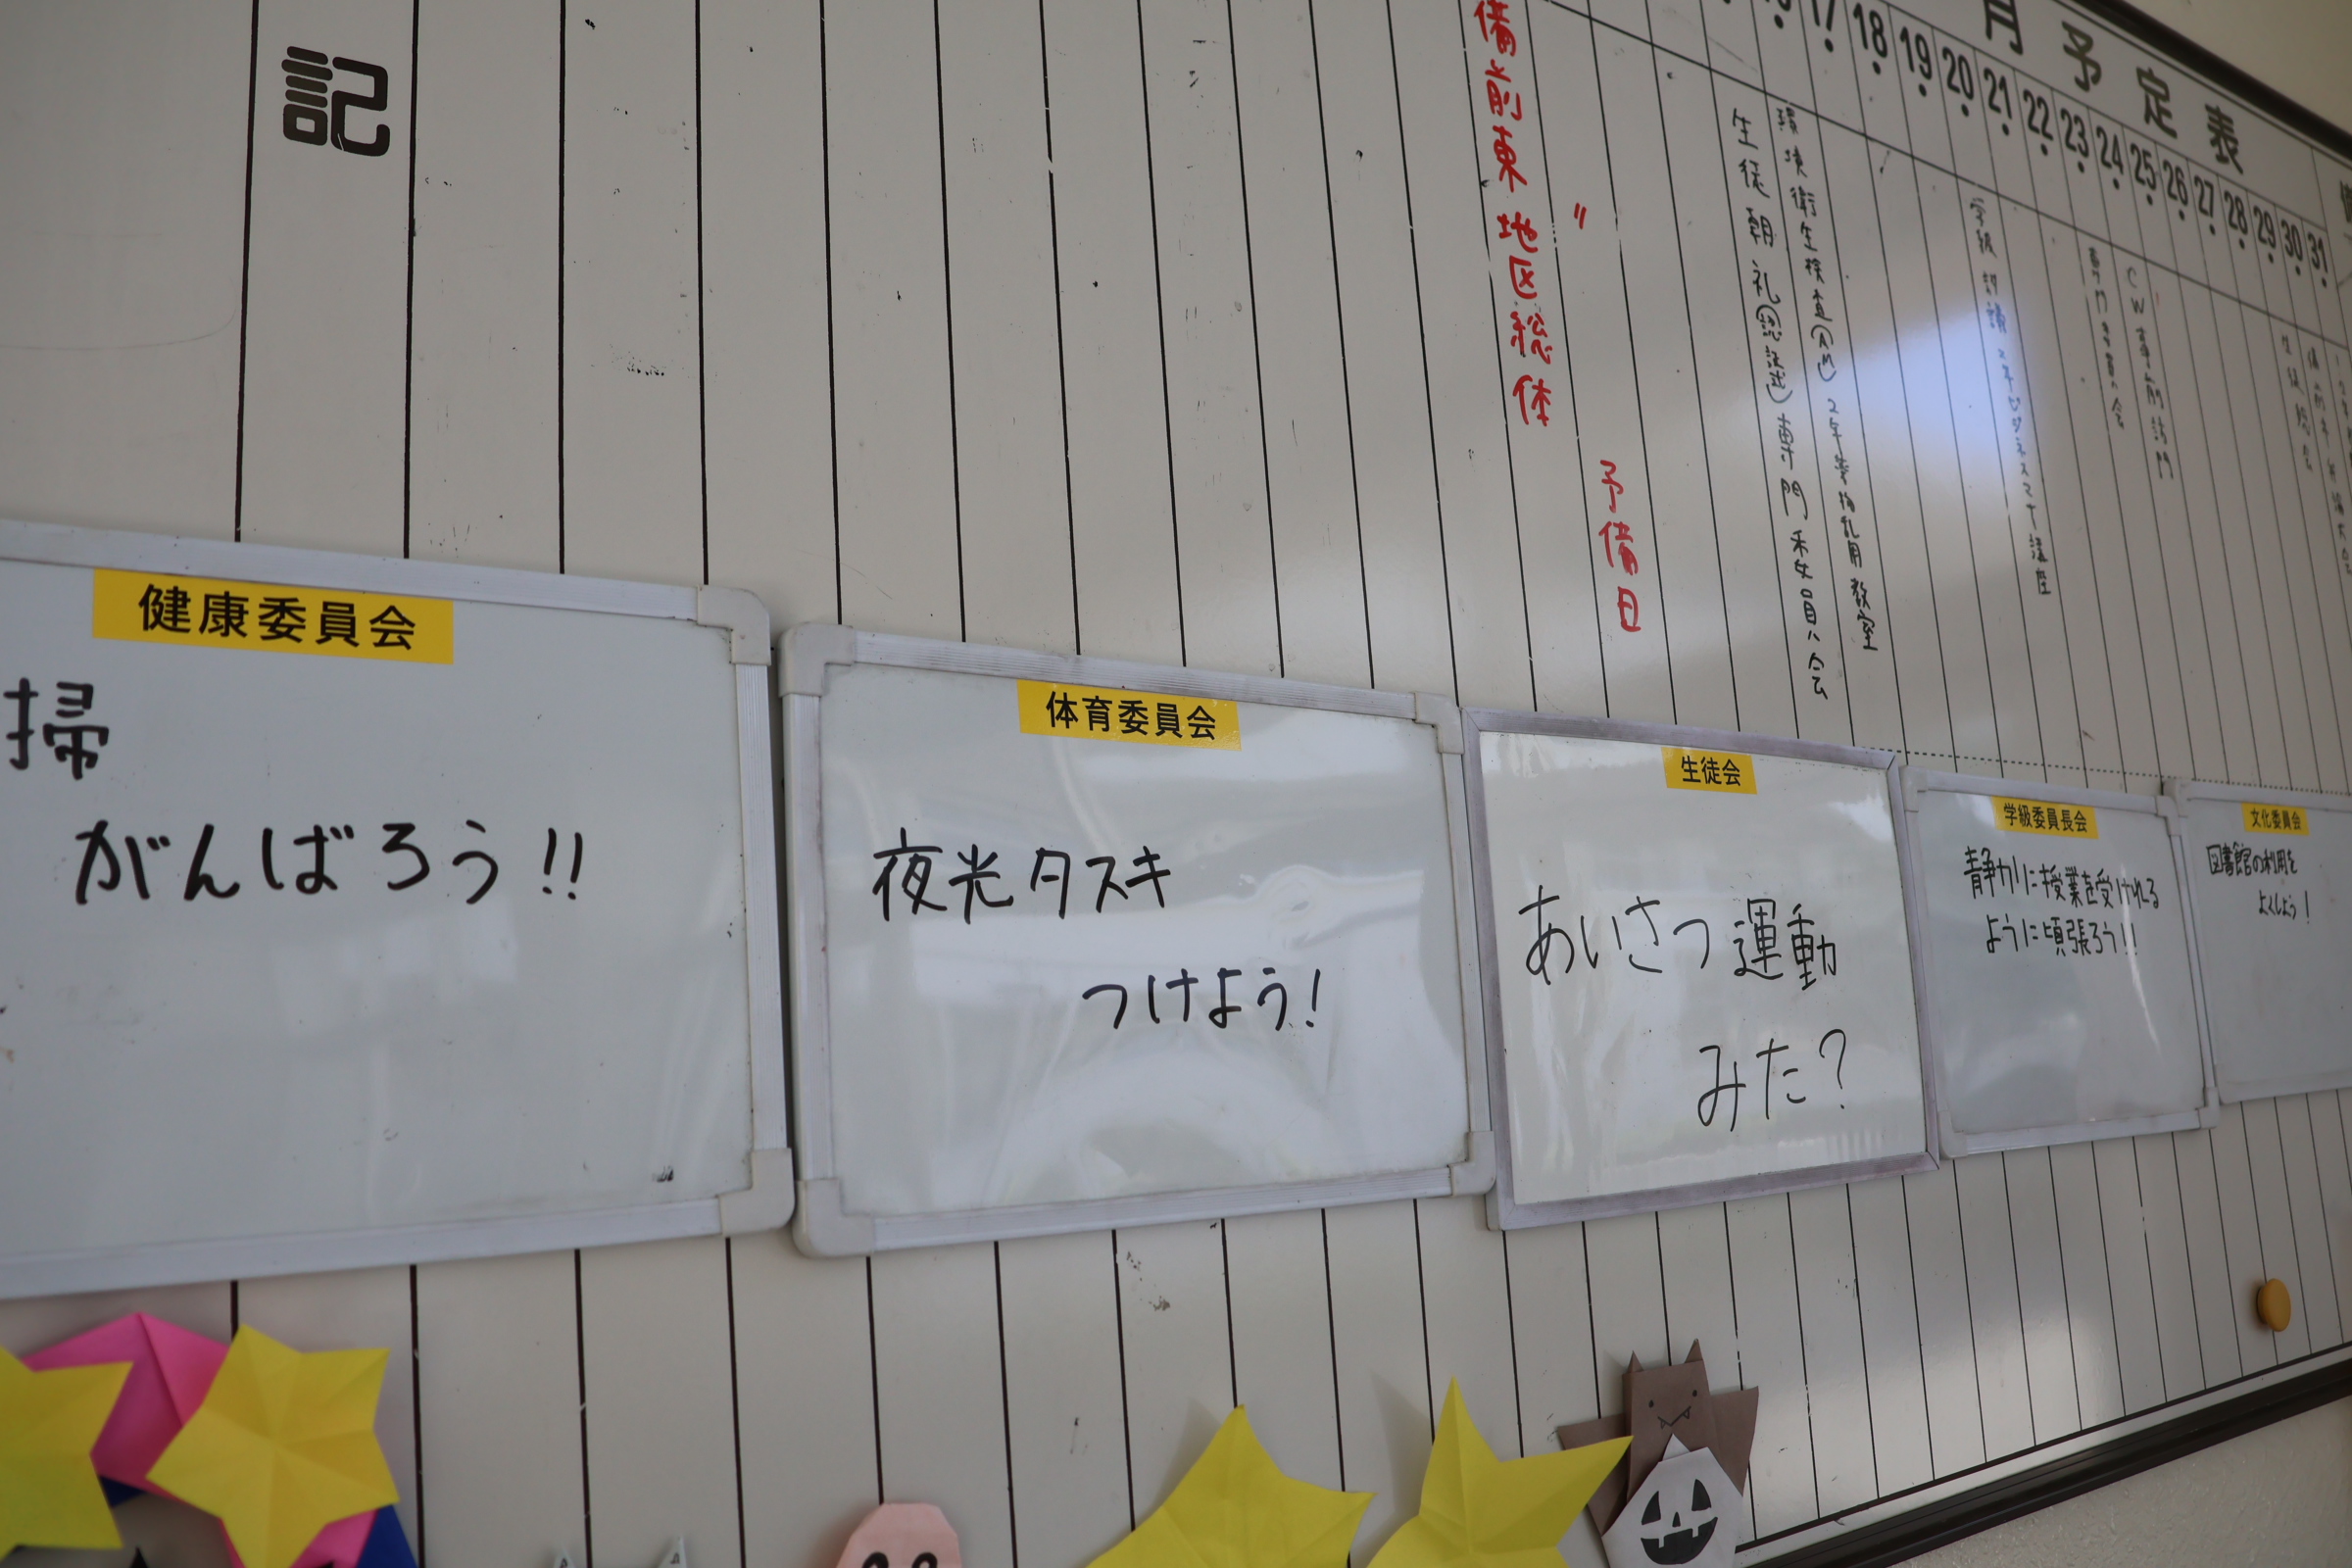 月予定表
記
16
17
18
19
20
21
22
23
24
25
26
27
28
29
30
31
備前東地区総体
〃 予備日
生徒朝礼(認証式) 専門委員会
環境衛生検査(AM) 2年薬物乱用教室
学級討議
専門委員会
CW事前訪問
生徒総会
健康委員会
掃
がんばろう!!
体育委員会
夜光タスキ
つけよう!
生徒会
あいさつ運動
みた?
学級委員長会
静かに授業を受けれる
ように頑張ろう!!
文化委員会
図書館の利用を
よくしよう!